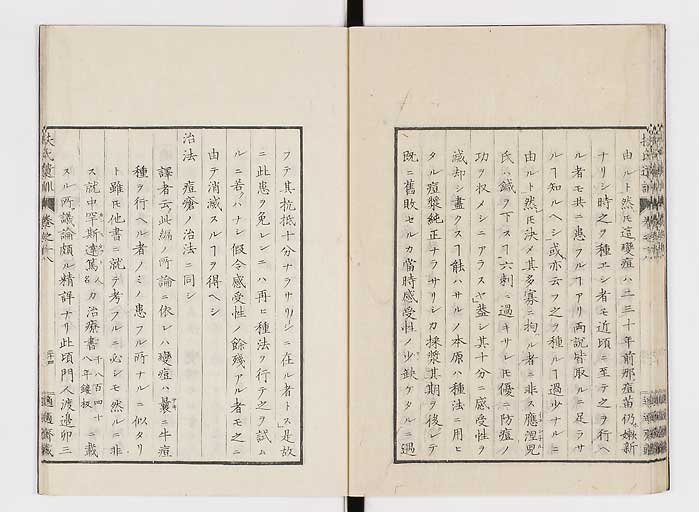 由ルト然𪜈這㿋痘ハ二三十年前那痘苗仍嫩新
ナリシ時之ヲ種ヱシ者モ近頃ニ至テ之ヲ行ヘ
ル者モ共ニ患フルヿアリ両説皆取ルニ足ラサ
ルヿ知ルヘシ或亦云フ之ヲ種ルヿ過少ナルニ
由ルト然𪜈決メ其多寡ニ拘ル者ニ非ス應涅児
氏ハ鍼ヲ下スヿ六刺ニ過キサレ𪜈優ニ防痘ノ
功ヲ収メシニアラスヤ蓋シ其十分ニ感受性ヲ
滅却シ盡クスヿ能ハサルノ本原ハ種法ニ用ヒ
タル痘漿純正ナラサリシカ採漿其期ヲ後レテ
既ニ舊敗セルカ當時感受性ノ少缺ケタルニ過
フテ其抗抵十分ナラサリシニ在ル者トス是故
ニ此患ヲ免レンニハ再ヒ種法ヲ行テ之ヲ試ム
ルニ若ハナシ假令感受性ノ餘残アル者モ之ニ
由テ消滅スルヿヲ得ヘシ
治法 痘瘡ノ治法ニ同シ
譯者云此編ノ所論ニ依レハ㿋痘ハ曩ニ牛痘
種ヲ行ヘル者ノミノ患フル所ナルニ似タリ
ト雖𪜈他書ニ就テ考フルニ必シモ然ルニ非
ス就中罕斯達篤名人カ治療書千八百四十八年鏤板ニ載
スル所議論頗ル精詳ナリ此頃門人渡邉卯三
扶氏遺訓 卷之十八 二十四 適適齋藏